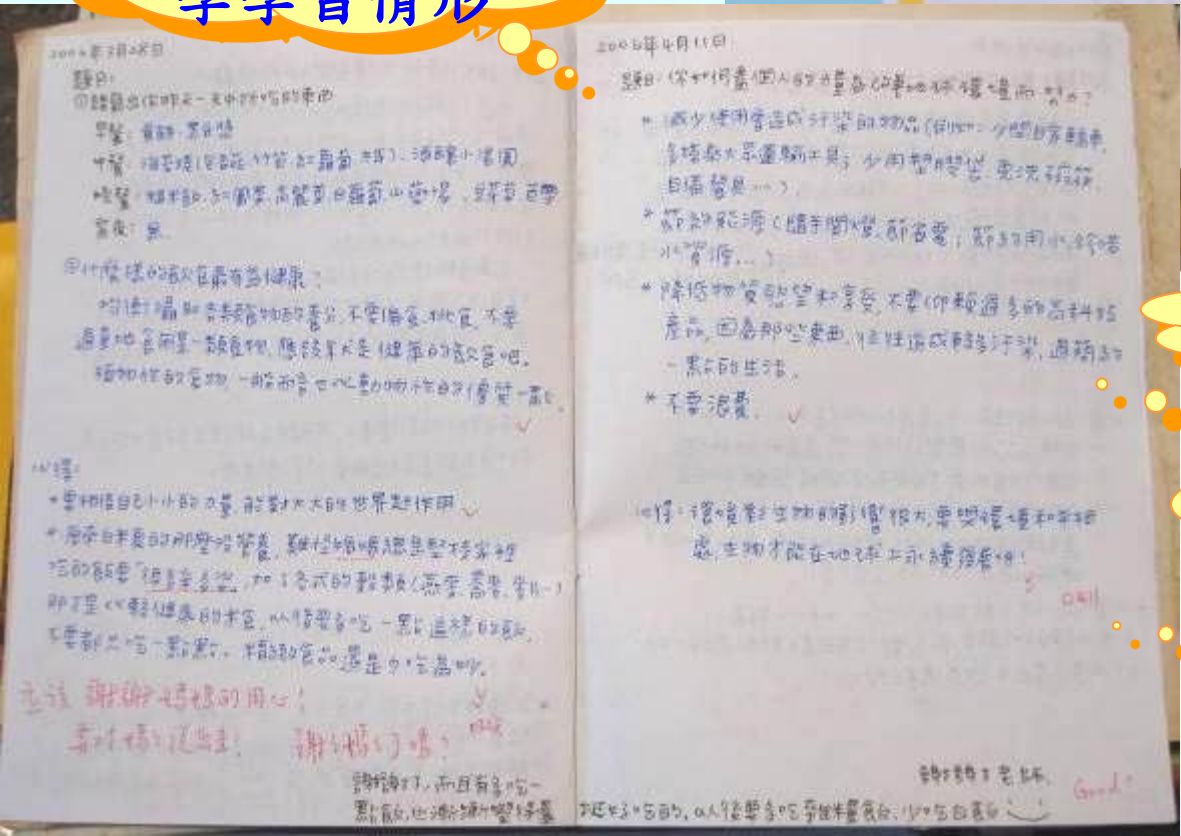 學學習情形
2006年3月28日
題目:
①請寫出你昨天一天中所吃的東西
早餐:
午餐:
晚餐: 糙米飯、
宵夜: 無.
②什麼樣的飲食最有益健康?
均衡攝取各類食物的養分, 不要偏食、挑食, 不要
過量地食用某一類食物, 應該算是健康的飲食吧。
植物性的食物, 一般而言也比動物性的優質一點。
心得:
*要相信自己小小的力量, 能對大大的世界起作用。
*原來白米真的那麼沒營養, 難怪媽媽總是堅持家裡
吃的飯要 加了各式的穀類(燕麥、蕎麥、
比較健康的米食, 以後要多吃一點這樣的飯,
不要都只吃一點點。精緻食品還是少吃為妙。
應該謝謝媽媽的用心!
要對媽媽說出來! 謝謝媽媽了嗎?
謝謝了, 而且有多吃一
點飯, 也漸漸覺得
2006年4月11日
題目: 你如何盡個人的力量為改善地球環境而努力?
* 減少使用會造成汙染的物品(例如: 少開自家轎車,
多搭乘大眾運輸工具; 少用塑膠袋、
自備餐具…)
* 節約能源(隨手關燈、節省電; 節約用水、珍惜
水資源…)
* 降低物質慾望和享受, 不要仰賴過多的高科技
產品, 因為那些東西, 往往造成較多汙染, 過簡約
一點的生活。
* 不要浪費。
心得: 環境對生物的影響很大, 要與環境和平相
處, 生物才能在地球上永續
0411
謝謝老師.
Good!
挺好吃的, 以後要多吃 少吃白飯